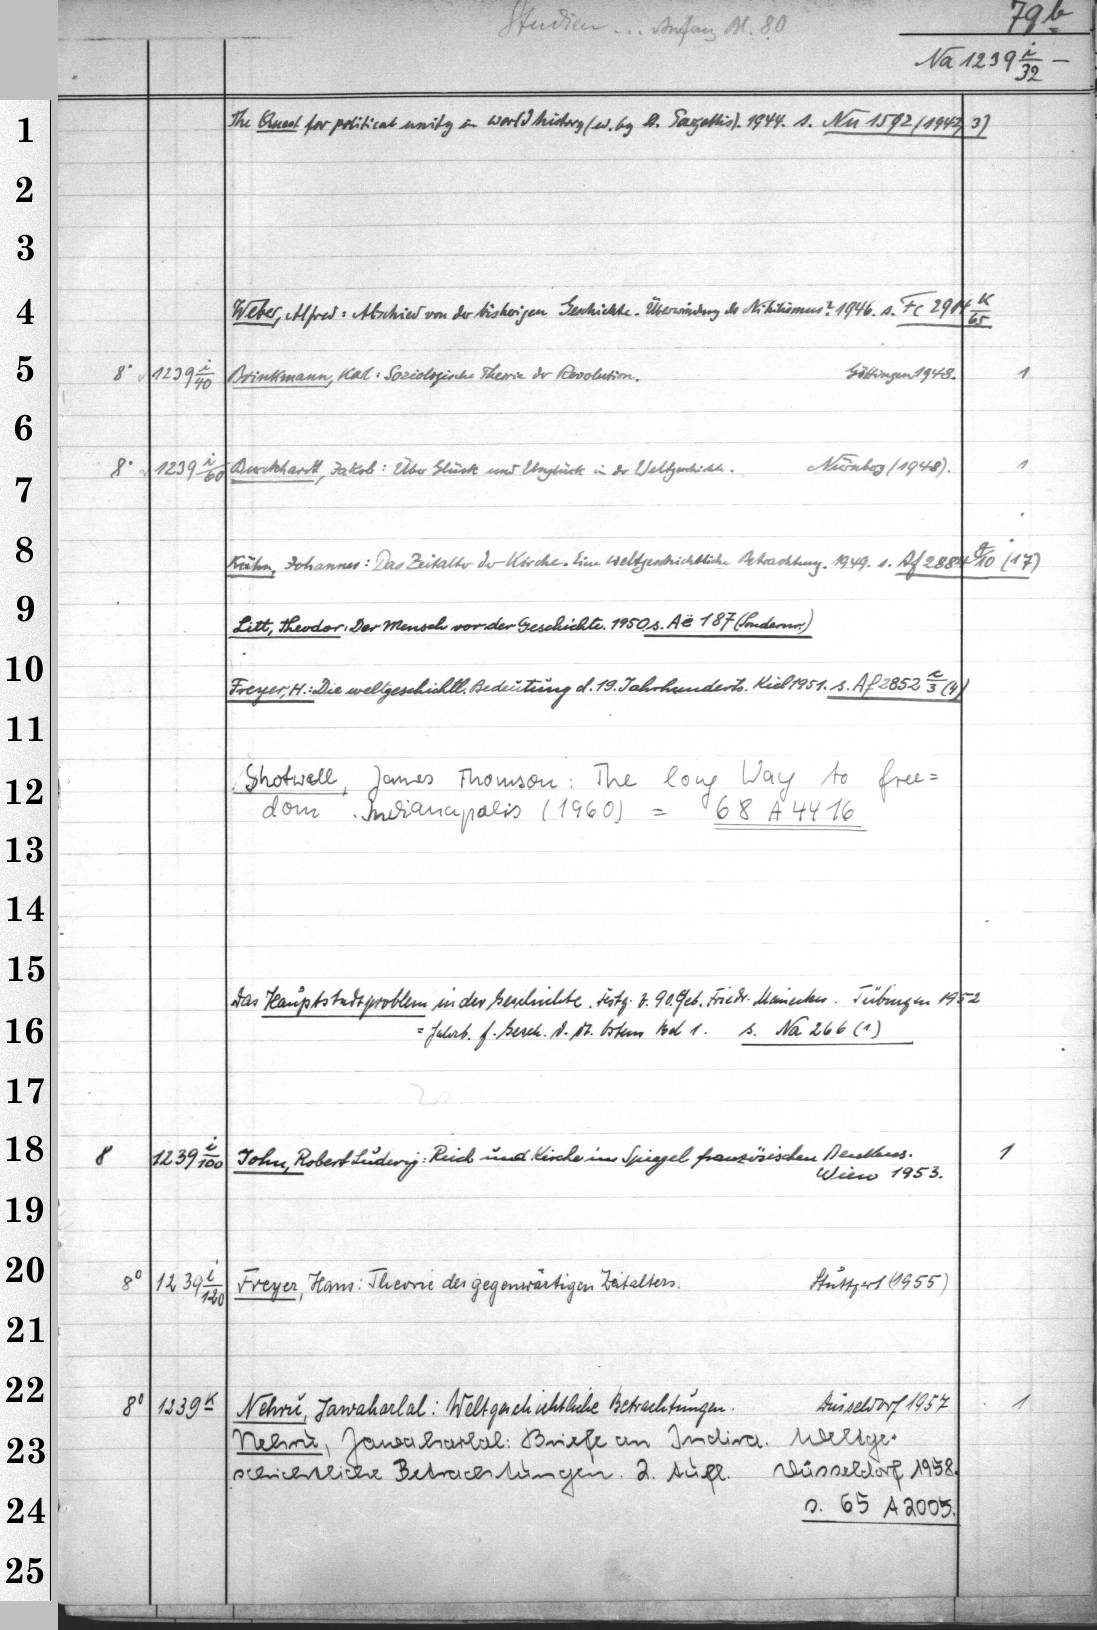 Studien ... Anfang Bl. 80
79b
Na 1239 i/32 —
1 The Quest for political unity in world history (ed. by S. Pargellis). 1944. s. Nu 1592 (1942, 3)
2
3
4 Weber, Alfred: Abschied von der bisherigen Geschichte. Überwindung des Nihilismus? 1946. s. Fc 2914 K/65
5 8° 1239 i/40 Brinkmann, Karl: Soziologische Theorie der Revolution. Göttingen 1948. 1
6
7 8° 1239 i/60 Burckhardt, Jakob: Über Glück und Unglück in der Weltgeschichte. Nürnberg (1948). 1
8 Kühn, Johannes: Das Zeitalter der Kirche. Eine weltgeschichtliche Betrachtung. 1949. s. Af 2884 /10 (17)
9 Litt, Theodor: Der Mensch vor der Geschichte. 1950 s. Aë 187 (Sondernr.)
10 Freyer, H.: Die weltgeschichtl. Bedeutung d. 19. Jahrhunderts. Kiel 1951. s. Af 2852 c/3 (4)
11
12 Shotwell, James Thomson: The long Way to free=
dom. Indianapolis (1960) = 68 A 4416
13
14
15
Das Hauptstadtproblem in der Geschichte. Festg. z. 90. Geb. Friedr. Meineckes. Tübingen 1952
16 = Jahrb. f. Gesch. d. dt. Ostens Bd 1. s. Na 266 (1)
17
18 8 1239 i/100 John, Robert Ludwig: Reich und Kirche im Spiegel französischen Denkens. 1
Wien 1953.
19
20 8° 1239 i/120 Freyer, Hans: Theorie des gegenwärtigen Zeitalters. Stuttgart (1955)
21
22 8° 1239 K Nehru, Jawaharlal: Weltgeschichtliche Betrachtungen. Düsseldorf 1957 1
23 Nehru, Jawaharlal: Briefe an Indira. Weltge-
schichtliche Betrachtungen. 2. Aufl. Düsseldorf 1958.
24 s. 65 A 2005.
25